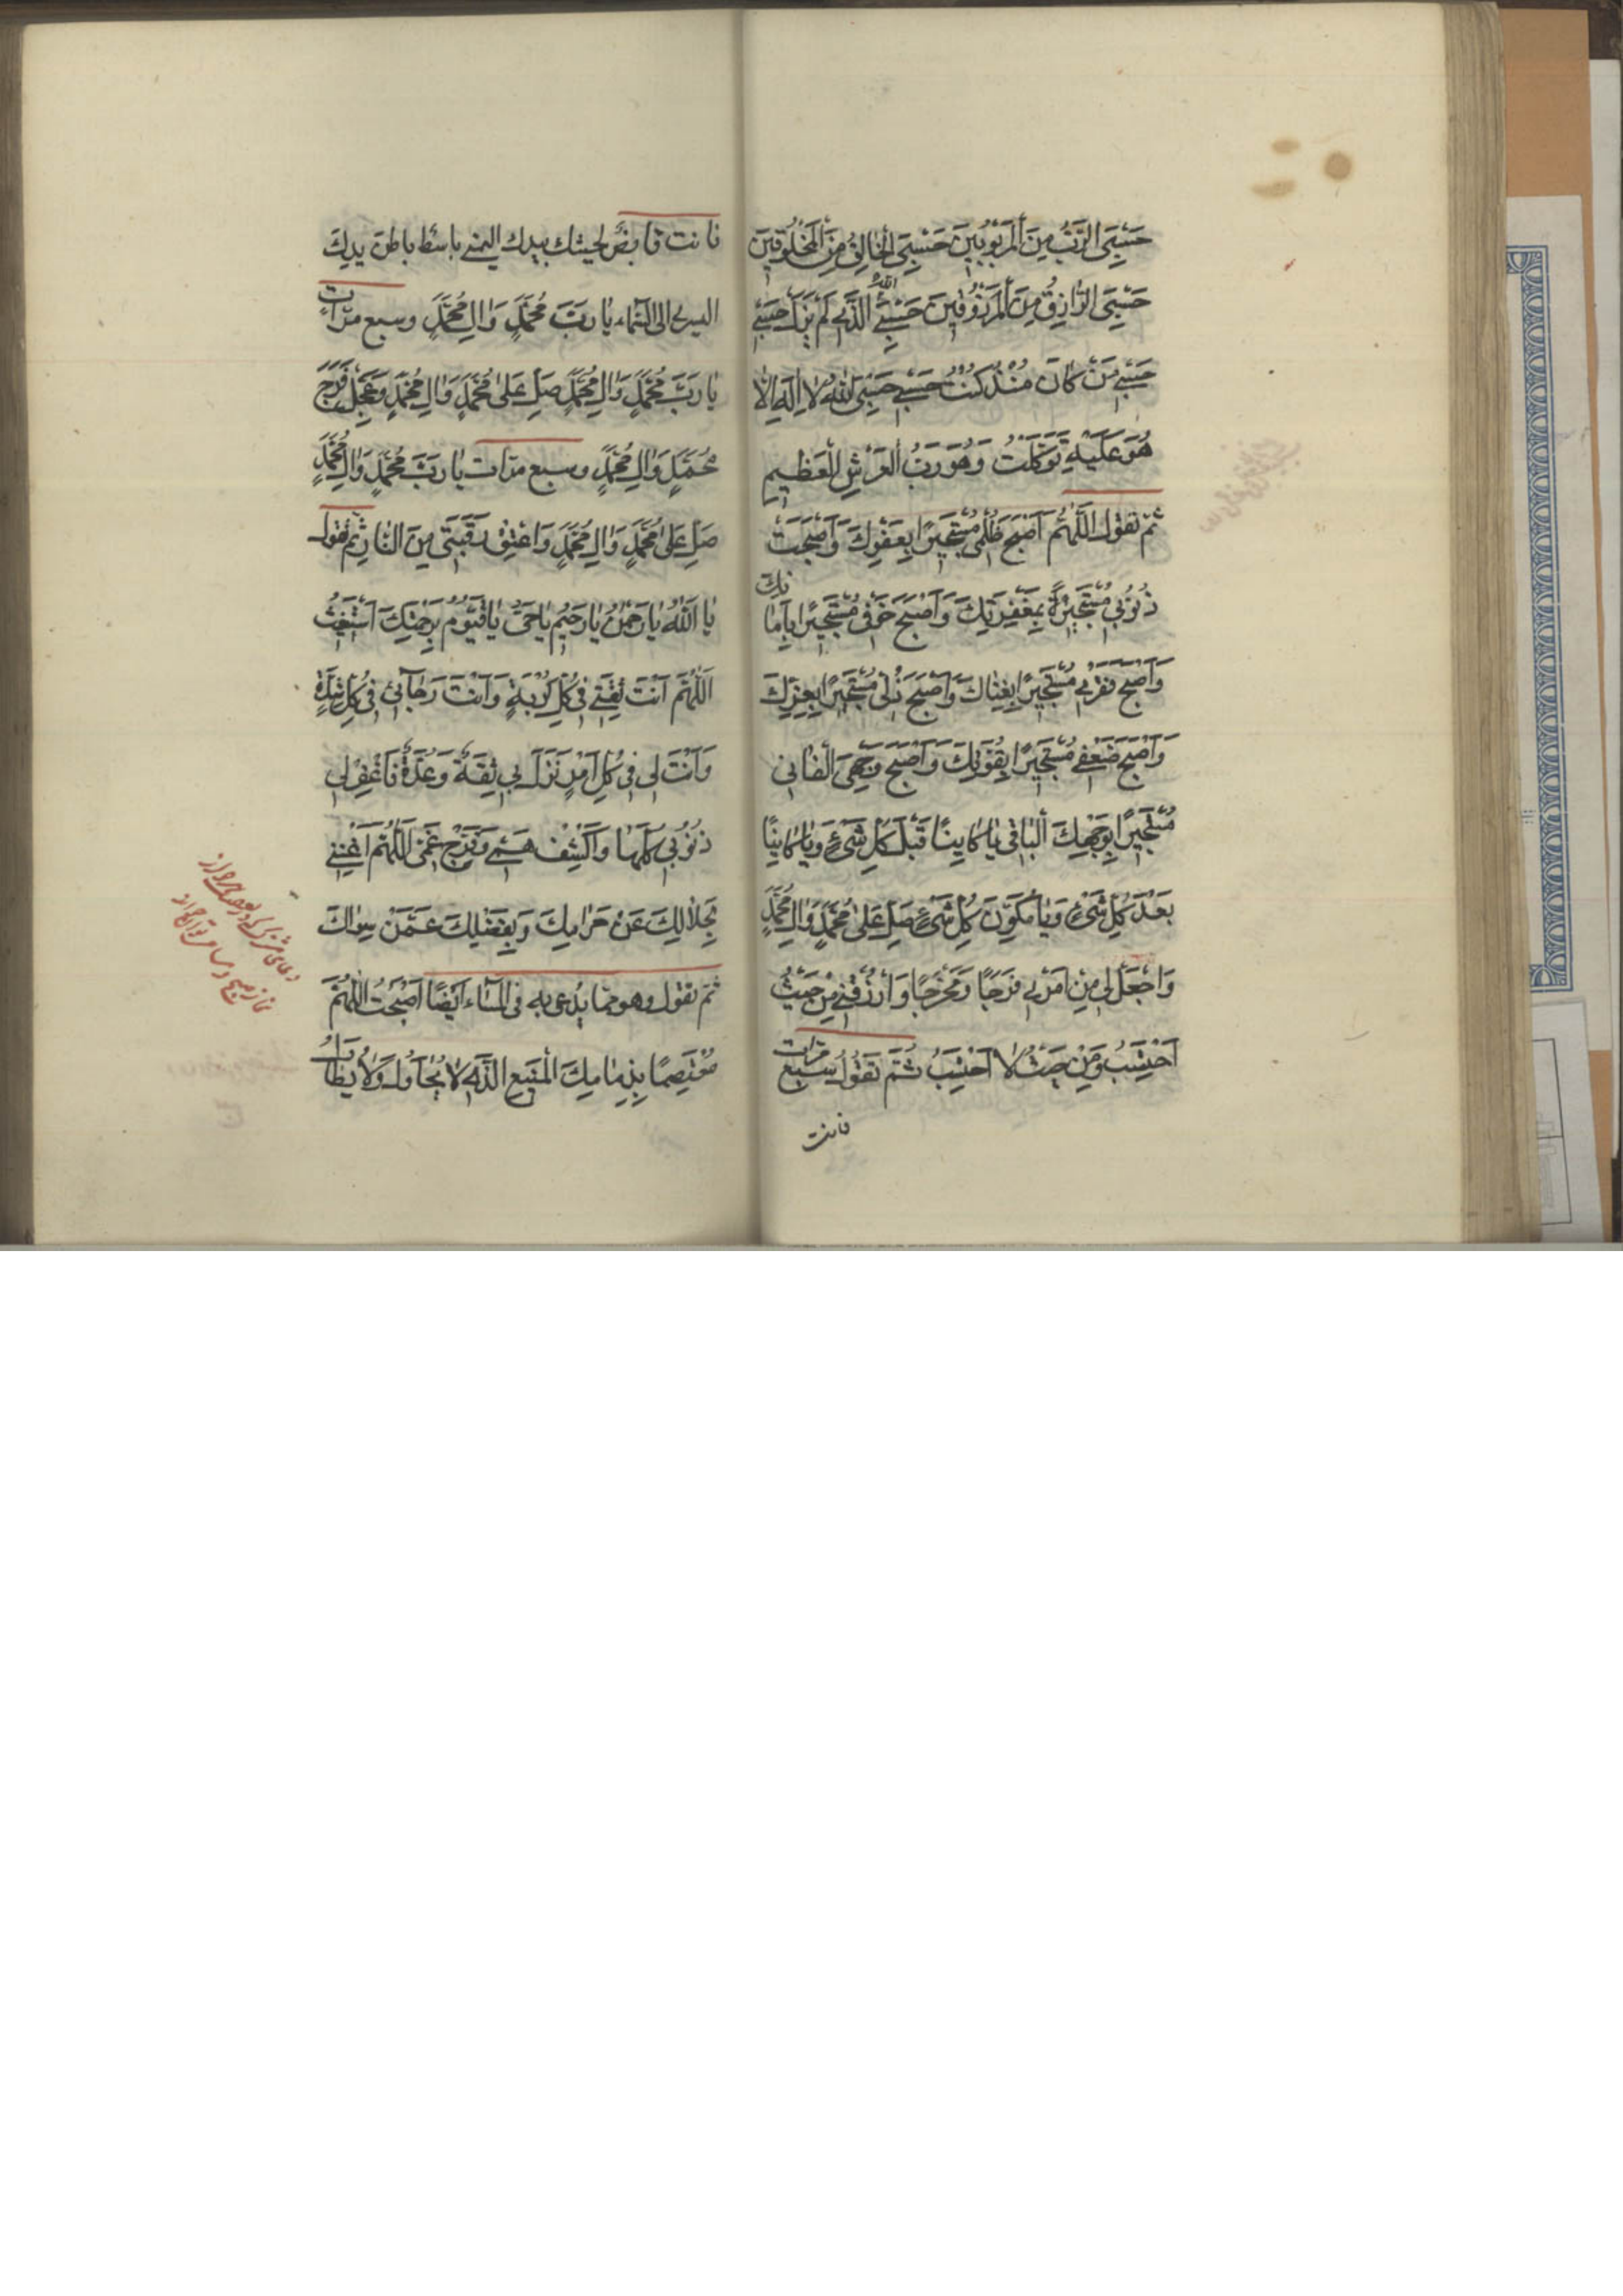 حَسْبِیَ الرَّبُّ مِنَ الْمَرْبُوبِینَ حَسْبِیَ الْخَالِقُ مِنَ الْمَخْلُوقِینَ
حَسْبِیَ الرَّازِقُ مِنَ الْمَرْزُوقِینَ حَسْبِیَ اللّٰهُ الَّذِی لَمْ یَزَلْ حَسْبِی
حَسْبِی مَنْ كَانَ مُنْذُ كُنْتُ حَسْبِی حَسْبِیَ اللّٰهُ لَا اِلٰهَ اِلَّا
هُوَ عَلَیْهِ تَوَكَّلْتُ وَهُوَ رَبُّ الْعَرْشِ الْعَظِیمِ
ثُمَّ تَقُولُ اَللّٰهُمَّ اَصْبَحَ ظُلْمِی مُسْتَجِیرًا بِعَفْوِكَ وَاَصْبَحَتْ
ذُنُوبِی مُسْتَجِیرَةً بِمَغْفِرَتِكَ وَاَصْبَحَ خَوْفِی مُسْتَجِیرًا بِاَمَانِكَ
وَاَصْبَحَ فَقْرِی مُسْتَجِیرًا بِغِنَاكَ وَاَصْبَحَ ذُلِّی مُسْتَجِیرًا بِعِزِّكَ
وَاَصْبَحَ ضَعْفِی مُسْتَجِیرًا بِقُوَّتِكَ وَاَصْبَحَ وَجْهِیَ الْفَانِی
مُسْتَجِیرًا بِوَجْهِكَ الْبَاقِی یَا كَایِنًا قَبْلَ كُلِّ شَیْءٍ وَیَا كَایِنًا
بَعْدَ كُلِّ شَیْءٍ وَیَا مُكَوِّنَ كُلِّ شَیْءٍ صَلِّ عَلٰی مُحَمَّدٍ وَاٰلِ مُحَمَّدٍ
وَاجْعَلْ لِی مِنْ اَمْرِی فَرَجًا وَمَخْرَجًا وَارْزُقْنِی مِنْ حَیْثُ
اَحْتَسِبُ وَمِنْ حَیْثُ لَا اَحْتَسِبُ ثُمَّ تَقُولُ سَبْعَ مَرَّاتٍ
فانت
فانت قابضٌ لحیتك بیدك الیمنی باسطٌ باطن یدكَ
الیسری الی السَّمَاء یَا رَبَّ مُحَمَّدٍ وَاٰلِ مُحَمَّدٍ وسبع مرّات
یَا رَبَّ مُحَمَّدٍ وَاٰلِ مُحَمَّدٍ صَلِّ عَلٰی مُحَمَّدٍ وَاٰلِ مُحَمَّدٍ وَعَجِّلْ فَرَجَ
مُحَمَّدٍ وَاٰلِ مُحَمَّدٍ وسبع مرّات یَا رَبَّ مُحَمَّدٍ وَاٰلِ مُحَمَّدٍ
صَلِّ عَلٰی مُحَمَّدٍ وَاٰلِ مُحَمَّدٍ وَاعْتِقْ رَقَبَتِی مِنَ النَّارِ ثُمَّ تَقُولُ
یَا اَللّٰهُ یَا رَحْمٰنُ یَا رَحِیمُ یَا حَیُّ یَا قَیُّومُ بِرَحْمَتِكَ اَسْتَغِیثُ
اَللّٰهُمَّ اَنْتَ ثِقَتِی فِی كُلِّ كُرْبَةٍ وَاَنْتَ رَجَآئِی فِی كُلِّ شِدَّةٍ
وَاَنْتَ لِی فِی كُلِّ اَمْرٍ نَزَلَ بِی ثِقَةٌ وَعُدَّةٌ فَاغْفِرْ لِی
ذُنُوبِی كُلَّهَا وَاكْشِفْ هَمِّی وَفَرِّجْ غَمِّی اَللّٰهُمَّ اَغْنِنِی
بِحَلَالِكَ عَنْ حَرَامِكَ وَبِفَضْلِكَ عَمَّنْ سِوَاكَ
ثمّ تقول وهو ممّا یُدعی به فی المَسَاء اَیضًا اَصْبَحْتُ اَللّٰهُمَّ
مُعْتَصِمًا بِذِمَامِكَ الْمَنِیعِ الَّذِی لَا یُحَاوَلُ وَلَا یُطَاوَلُ